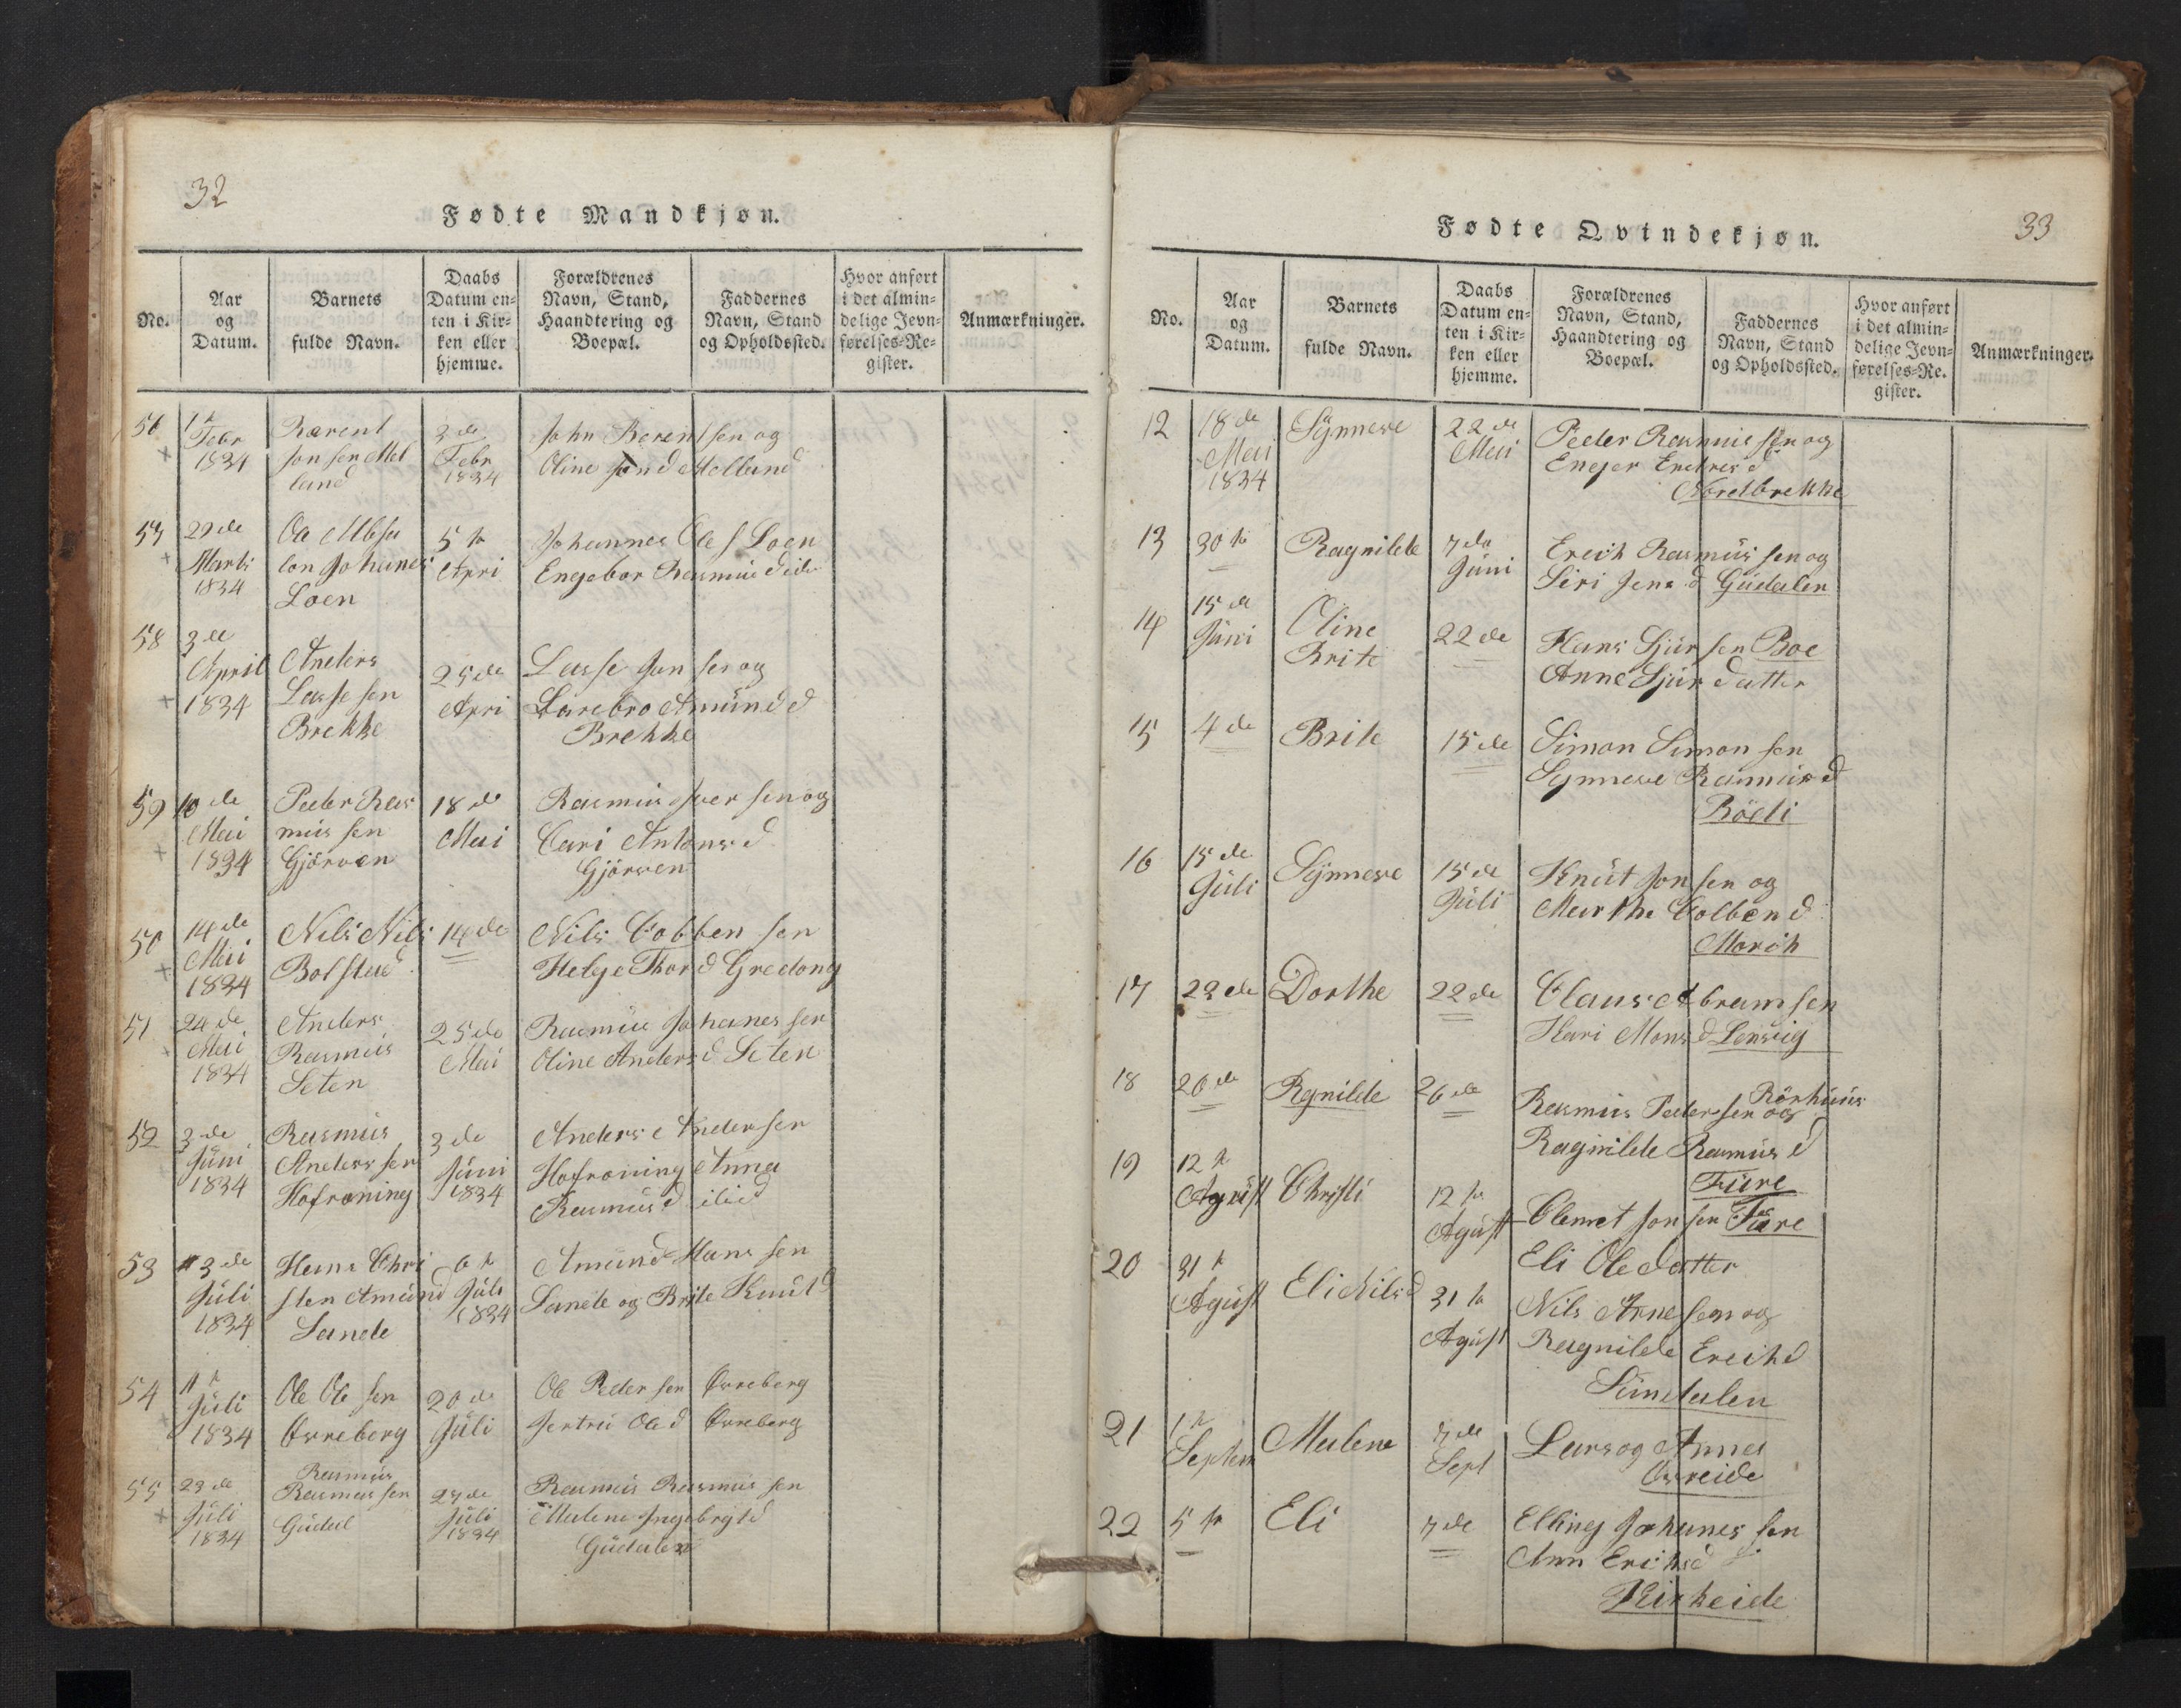 32
Fødte Mandkjøn.
No.
Aar
og
Datum.
Barnets
fulde Navn.
Daabs
Datum en-
ten i Kir-
ken eller
hjemme.
Forældrenes
Navn, Stand,
Haandtering og
Boepæl.
Faddernes
Navn, Stand
og Opholdssted.
Hvor anført
i det almin-
delige Jevn-
førelses-Re-
gister.
Anmærkninger.
56
Febr
1834
Jon sen Mel
land
3 de
Febr
1834
John Berent sen og
Oline Jon d Melland
29 de
Marts
1834
Johanes
Loen
5 te
Apri
Johannes Ole s Loen
Engebor Rasmus
58
3 de
April
1834
Anders
Lasse sen
Brekke
25 de
Apri
Lasse Jon sen og
Amund d
Brekke
59
10 de
Mai
1834
Peder Ras
mus sen
Gjörven
18 de
Mai
Rasmus Iver sen og
Cari Antons d
Gjörven
50
14 de
Mai
1834
Nils Nils
Bolstad
14 de
Nils Cobben sen
Helge Thor d Gredong
51
24 de
Mai
1834
Anders
Rasmus
Seten
25 de
Mai
Rasmus Johanes sen
Oline Anders d Seten
52
3 de
Juni
1834
Rasmus
Anders sen
Hofroning
3 de
Juni
1834
Anders Ander sen
Hofroning Anna
Rasmus d
53
3 de
Juli
1834
Hans Chri
sten Amund
Sande
6 te
Juli
1834
Amund Hans sen
Sande og Brite Knut d
54
Juli
1834
Ole Ole sen
Øvreberg
20 de
Juli
Ole Peder sen Øvreberg
Jertru Ole d Øvreberg
55
23 de
Juli
1834
Rasmus
Rasmus sen
Gudal
27 de
Juli
1834
Rasmus Rasmus sen
Malene Ingebrigt d
Gudalen
33
Fødte Qvindekjøn.
No.
Aar
og
Datum.
Barnets
fulde Navn.
Daabs
Datum en-
ten i Kir-
ken eller
hjemme.
Forældrenes
Navn, Stand,
Haandtering og
Boepæl.
Faddernes
Navn, Stand
og Opholdssted.
Hvor anført
i det almin-
delige Jevn-
førelses-Re-
gister.
Anmærkninger.
12
18 de
Mai
1834
Synneve
22 de
Mai
Peder Rasmus sen og
Enejer d
Nordbrekke
13
30 te
Ragnilde
7 de
Juni
Erich Rasmus sen og
Siri Jens d Gudalen
14
15 de
Juni
Oline
Brite
22 de
Hans Sjur sen Boe
Anne Sjur datter
15
4 de
Brite
15 de
Simon Simon sen
Synneve Rasmus d
Röeli
16
15 de
Juli
Synneve
15 de
Juli
Knut Jon sen og
Marthe Colben d
Morch
17
22 de
Dorthe
22 de
Claus Abram sen
Kari Mons d Lensvig
18
20 de
Rgnilde
26 de
Rasmus Peder sen og Rörhuus
Ragnilde Rasmus d
Fure
19
12 te
Agust
Christi
12 te
Agust
Clemet Jon sen Fure
Eli Ole datter
20
31 te
Agust
Eli Nils d
31 te
Agust
Nils Arne sen og
Ragnilde Erich d
Sundalen
21
1 te
Septem
Malene
7 de
Sept
Lars og Anne
Osreide
22
5 te
Eli
7 de
Elling Johanes sen
Ann Erichs d
Kirkeide